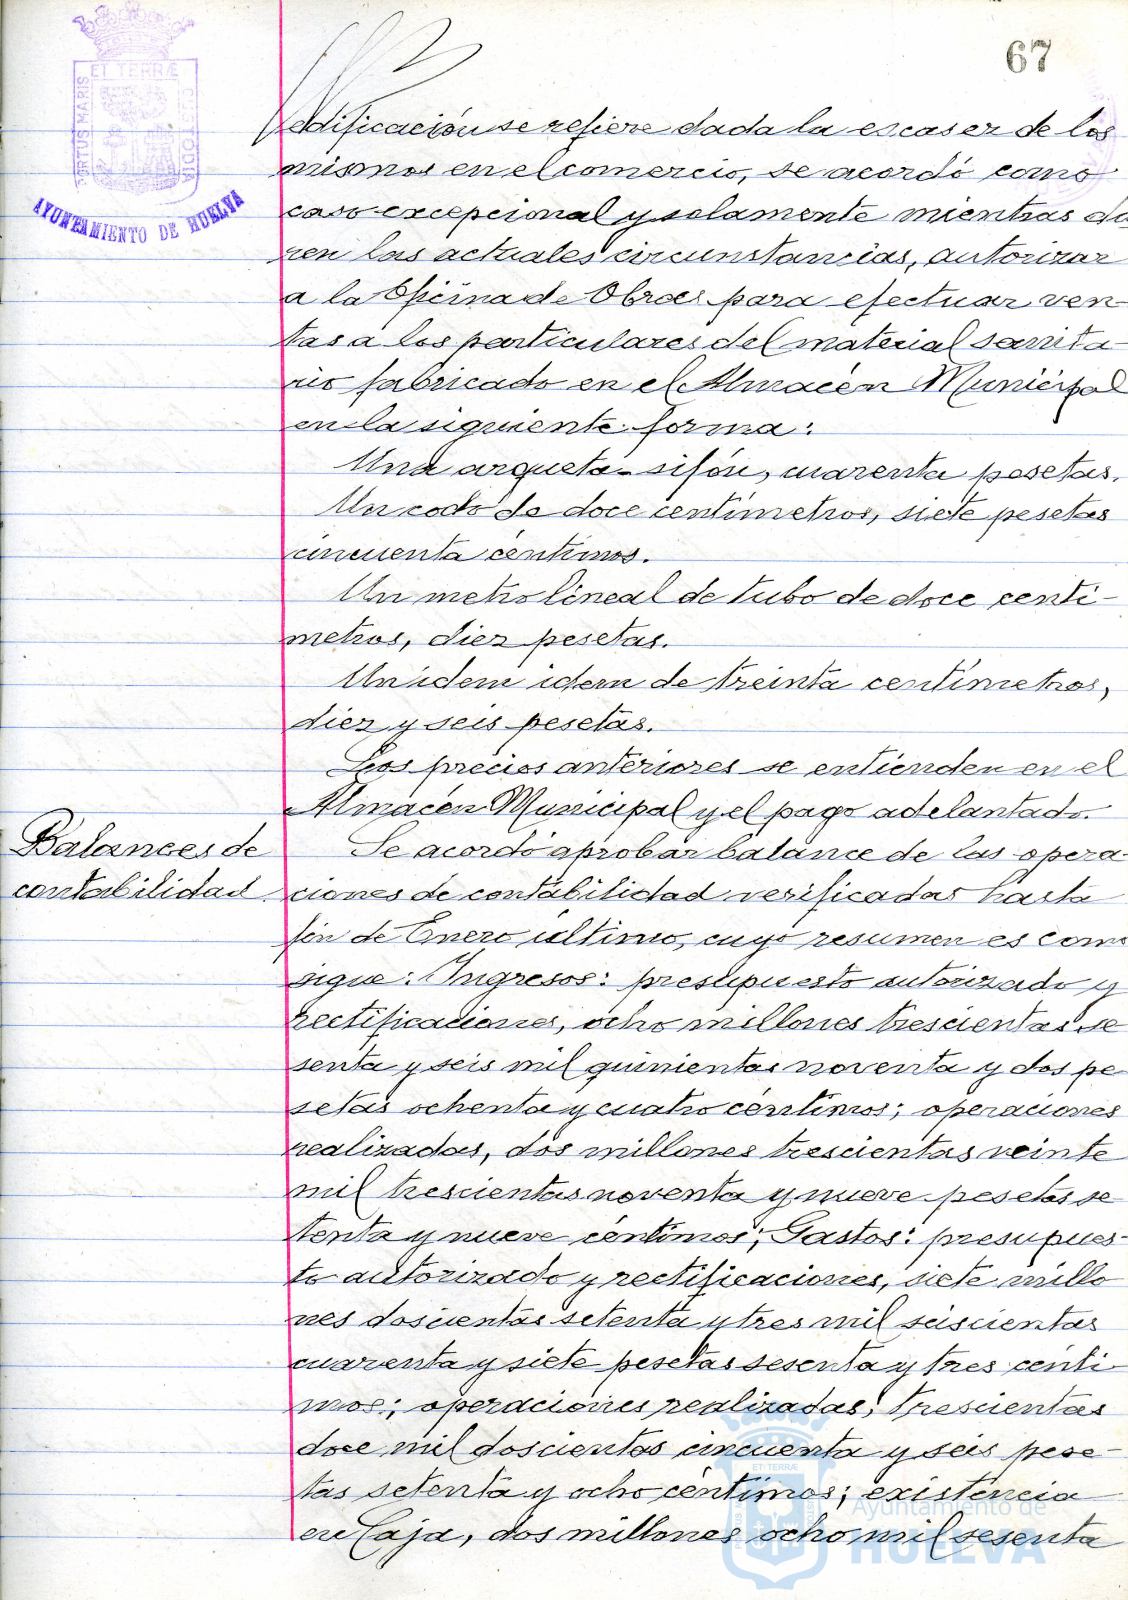 67
PORTUS MARIS ET TERRÆ CUSTODIA
AYUNTAMIENTO DE HUELVA
edificación se refiere dada la escasez de los
mismos en el comercio, se acordó como
caso excepcional y solamente mientras du
ren las actuales circunstancias, autorizar
a la Oficina de Obras para efectuar ven-
tas a los particulares del material sanita-
rio fabricado en el Almacén Municipal
en la siguiente forma:
Una arqueta-sifón, cuarenta pesetas.
Un codo de doce centímetros, siete pesetas
cincuenta céntimos.
Un metro lineal de tubo de doce centí-
metros, diez pesetas.
Un idem idem de treinta centímetros,
diez y seis pesetas.
Los precios anteriores se entienden en el
Almacén Municipal y el pago adelantado.
Balances de
contabilidad.
Se acordó aprobar balance de las opera-
ciones de contabilidad verificadas hasta
fin de Enero último, cuyo resumen es como
sigue: Ingresos: presupuesto autorizado y
rectificaciones, ocho millones trescientas se
senta y seis mil quinientas noventa y dos pe
setas ochenta y cuatro céntimos; operaciones
realizadas, dos millones trescientas veinte
mil trescientas noventa y nueve pesetas se
tenta y nueve céntimos; Gastos: presupues-
to autorizado y rectificaciones, siete millo
nes doscientas setenta y tres mil seiscientas
cuarenta y siete pesetas sesenta y tres cénti-
mos; operaciones realizadas, trescientas
doce mil doscientas cincuenta y seis pese-
tas setenta y ocho céntimos; existencia
en Caja, dos millones ocho mil sesenta
Ayuntamiento de
HUELVA